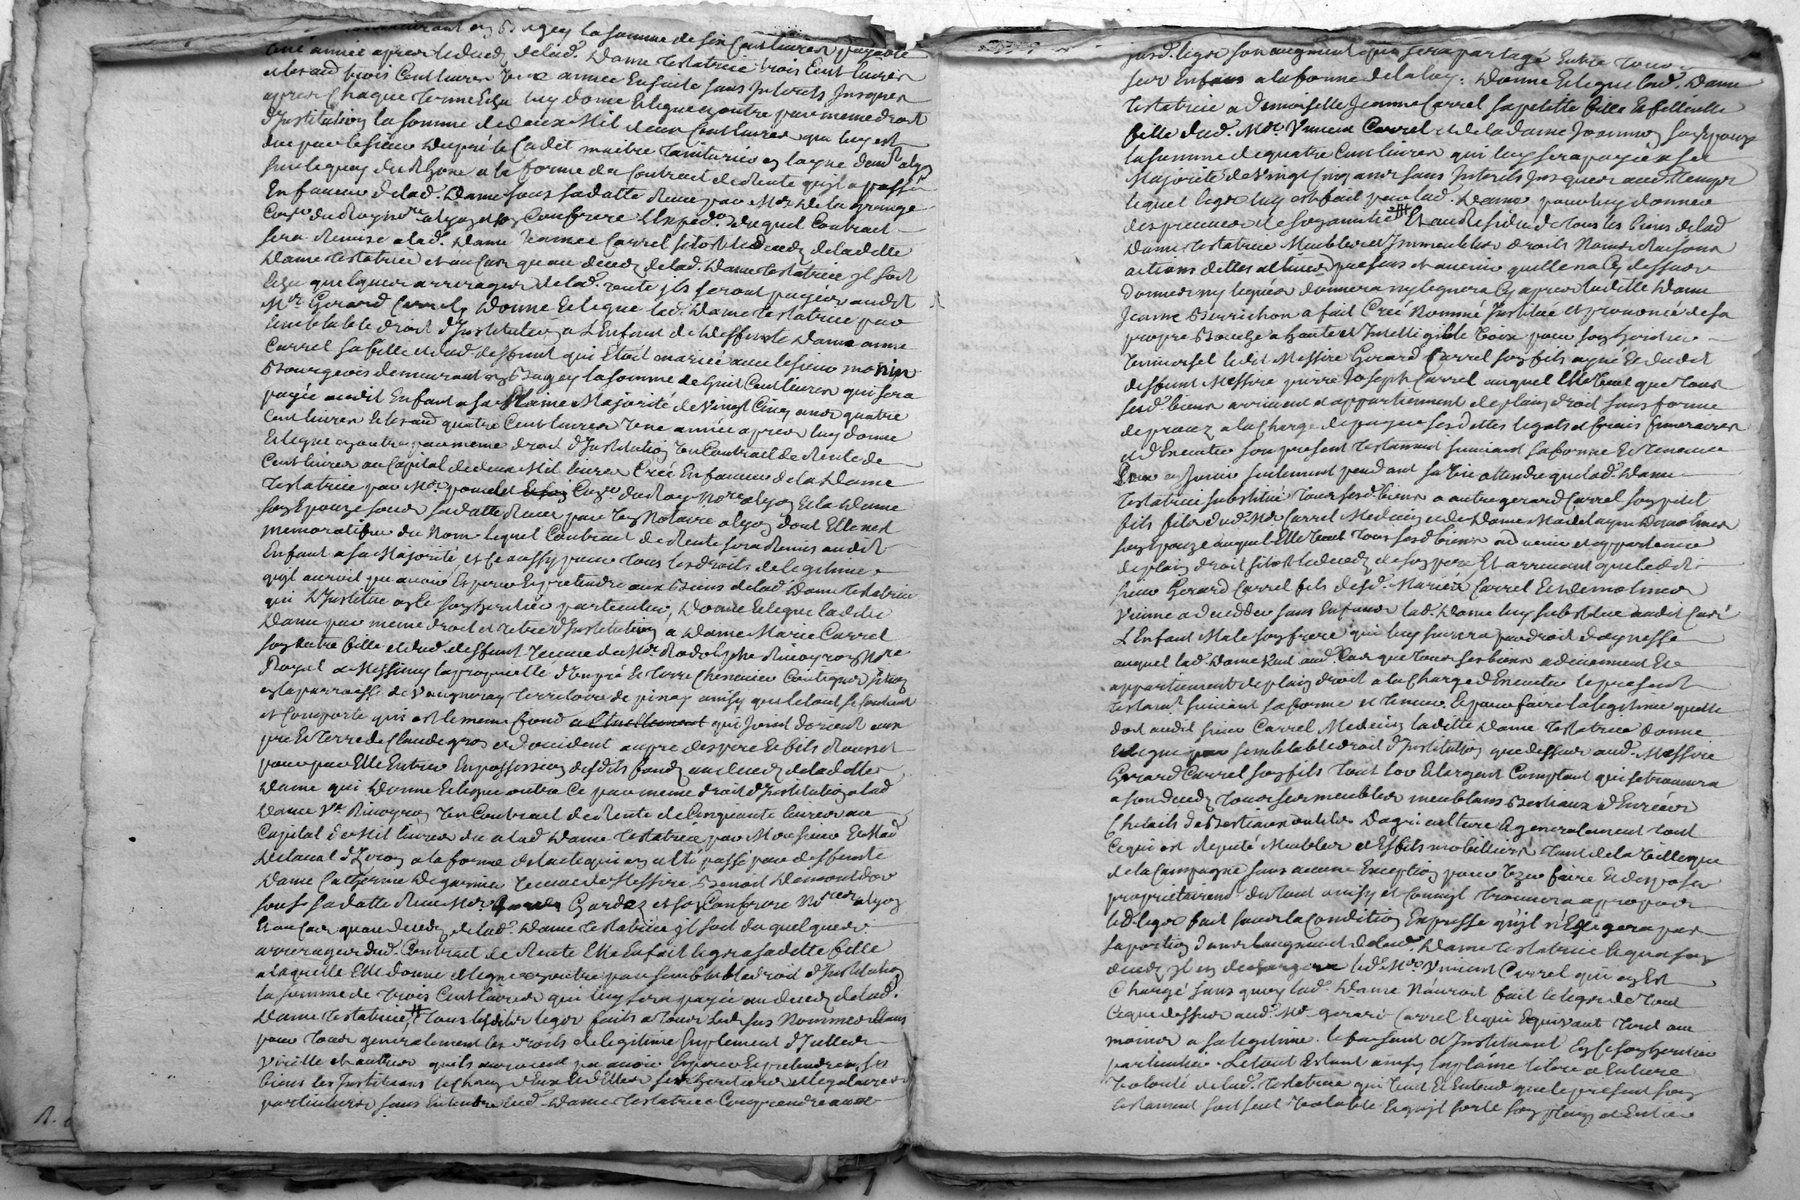 demeurant en Bugey la somme de six cent livres payable
une année apres le deced de lad. Dame testatrice trois cent livres
et les aud trois cent livres une année ensuite sans interets jusques
apres chaque terme echu luy donne et legue en outre par meme droit
d'Institution la somme de deux mil deux cent livres qui luy est
due par le sieur Dupré le cadet maitre
sur le quay du Rhone a la forme du contract de rente qu'il a passé
en faveur de lad. Dame sous sa datte receu par Me Delagrange
et son confrere lequel contract
sera remise a lad. Dame Carrel sitost le deced de la ditte
Dame testatrice et au cas qu'au deced de lad. Dame testatrice il soit
echu quelques arrerages de lad. rente ils seront payés audit
Mr Gerard Carrel donne et legue lad. Dame testatrice par
semblable droit d'Institution a l'Enfant de deffunte Dame anne
Carrel sa fille et dud deffunt qui etoit mariée avec le sieur monin
Bourgeois demeurant en Bugey la somme de huit cent livres qui sera
payée audit Enfant a sa Majorité de vingt cinq ans quatre
cent livres et les aud quatre cent livres une année apres luy donne
et legue en outre par meme droit d'Institution un Contract de Rente de
cent livres au capital de deux Mil livres Créé en faveur de la Dame
testatrice par et la Dame
son Epouze sous sa datte receu par un Notaire a lyon dont Elle n'est
memorative du Nom lequel Contract de Rente sera remis audit
Enfant a sa Majorité, et ce aussy pour tous les droits de legitime
qu'il auroit pu avoir et pretendre aux Biens de lad. Dame testatrice
qui l'Institue en ce son heritier particulier, Donne et legue laditte
Dame par meme droit et titre d'Institution a Dame Marie Carrel
son autre fille et dud. deffunt veuve de Me Rodolphe Nore
Royal a Messimy la proprieté d'un pré et terre
en la parroisse de Vaugneray territoire de ainsy que le tout se contient
et comporte qui est le meme fond actuellement qui joint d'orient aux
pré et terre de Claude gros et d'occident au pré des pere et fils
pour par Elle Entrer en possession desdits fonds au deced de la ditte
Dame qui Donne et legue outre ce par meme droit d'Institution a lad
Dame Ve un Contract de Rente de Cinquante livres au
Capital de Mil livres du a lad Dame testatrice par Monsieur
a la forme de l'acte qui en a eté passé par deffunte
Dame Catherine veuve de Messire Benoit
sous sa datte receu Me et son Confrere Nores a lyon
Et au cas qu'au deced de lad. Dame testatrice il soit du quelques
arrerages dud. Contract de Rente Elle En fait legs a sa ditte fille
a laquelle Elle donne et legue en outre par semblable droit d'Institution
la somme de trois Cent livres qui luy sera payée au deced de lad.
Dame testatrice, # tous lesdits legs faits a tous les sus Nommés
pour tous generalement les droits de legitime suplement d'icelles
et autres qu'ils auroient pu avoir Esperer et pretendre en ses
biens les Instituans ses heritiers et legataires
particuliers sans Entendre lad. Dame testatrice Comprendre aux
susd. legs son augment qui sera partagé Entre tous
ses Enfans a la forme de la loy: Donne et legue lad. Dame
testatrice a Demoiselle Jeanne Carrel sa petitte fille et fillieulle
fille dud. Me Vincent Carrel et de la dame son Epouze
la somme de quatre Cent livres qui luy sera payée a sa
Majorité de vingt Cinq ans sans Interets jusques aud. temps
lequel legs luy est fait par lad. Dame pour luy donner
des preuves de son amitié # Et au Residu de tous les biens de lad
Dame testatrice Meubles et Immeubles droits Noms Raisons
actions dettes actives presens et avenir qu'elle n'a cy dessus
donnés ny legués donnera ny leguera cy apres laditte Dame
Jeanne a fait Créé Nommé Institué et prononcé de sa
propre Bouche a haute et Intelligible voix pour son heritier
universel le dit Messire Gerard Carrel son fils ayné et dudit
deffunt Messire pierre Joseph Carrel auquel Elle veut que tous
sesd. biens arrivent et appartiennent de plein droit sans forme
de procez a la charge de payer ses dettes legats et frais funeraires
et d'Executer son present testament suivant sa forme et teneur
seulement pendant sa vie attendu que lad. Dame
testatrice substitue tous sesd. biens a autre gerard Carrel son petit
fils fils dud. Mr Carrel Medecin et de Dame Madelayne
son Epouze auquel Elle veut tous sesd. biens advenir et appartenir
de plein droit sitost le deced de son pere Et arrivant que ledit
sieur Gerard Carrel fils desd. mariés Carrel et
vienne a deceder sans Enfans lad. Dame luy substitue audit Cas
l'Enfant Male son frere qui luy suivra par droit d'aynesse
auquel lad. Dame veut aud. Cas que tous ses biens adviennent et
appartiennent de plein droit a la charge d'Executer le present
testamt suivant sa forme et teneur. Et pour faire la legitime quelle
doit audit sieur Carrel Medecin laditte Dame testatrice donne
et legue par semblable droit d'Institution que dessus aud. Messire
Gerard Carrel son fils tout l'or et largent Comptant qui se trouvera
a son deced tous ses meubles meublans Bestiaux
de Bestiaux outils d'agriculture et generalement tout
ce qui est reputé Meubles et Effets mobiliers tant de la ville que
de la Campagne sans aucune Exception pour en faire et disposer
proprietaire du tout ainsy et comme il trouvera a propos
led. legs fait sous la Condition Expresse qu'il n'Exigera pas
sa portion dans laugment de lad. Dame testatrice Et qu'a son
deced il en dechargera led. Me Vincent Carrel qui en Est
Chargé sans quoy lad. Dame n'auroit fait le legs de tout
ce que dessus aud. Mr Gerard Carrel Et qui Equivaut tout au
moins a sa legitime. le faisant et Instituant En ce son heritier
particulier. Le tout Estant ainsy la pleine libre et Entiere
volonté de lad. testatrice qui veut Et Entend que le present son
testament soit seul valable et qu'il sorte son plein et Entier